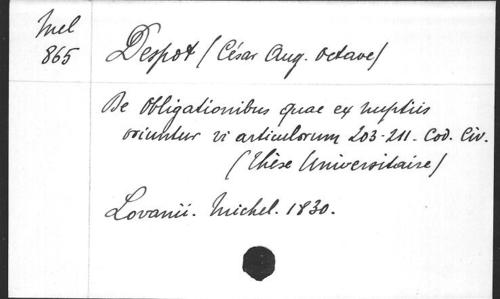 Mel
865
Despot (César Aug. Octave)
De Obligationibus quae ex nuptiis
oriuntur vi articulorum 203-211. Cod. Civ.
(Thèse Universitaire)
Lovanii. Michel. 1830.